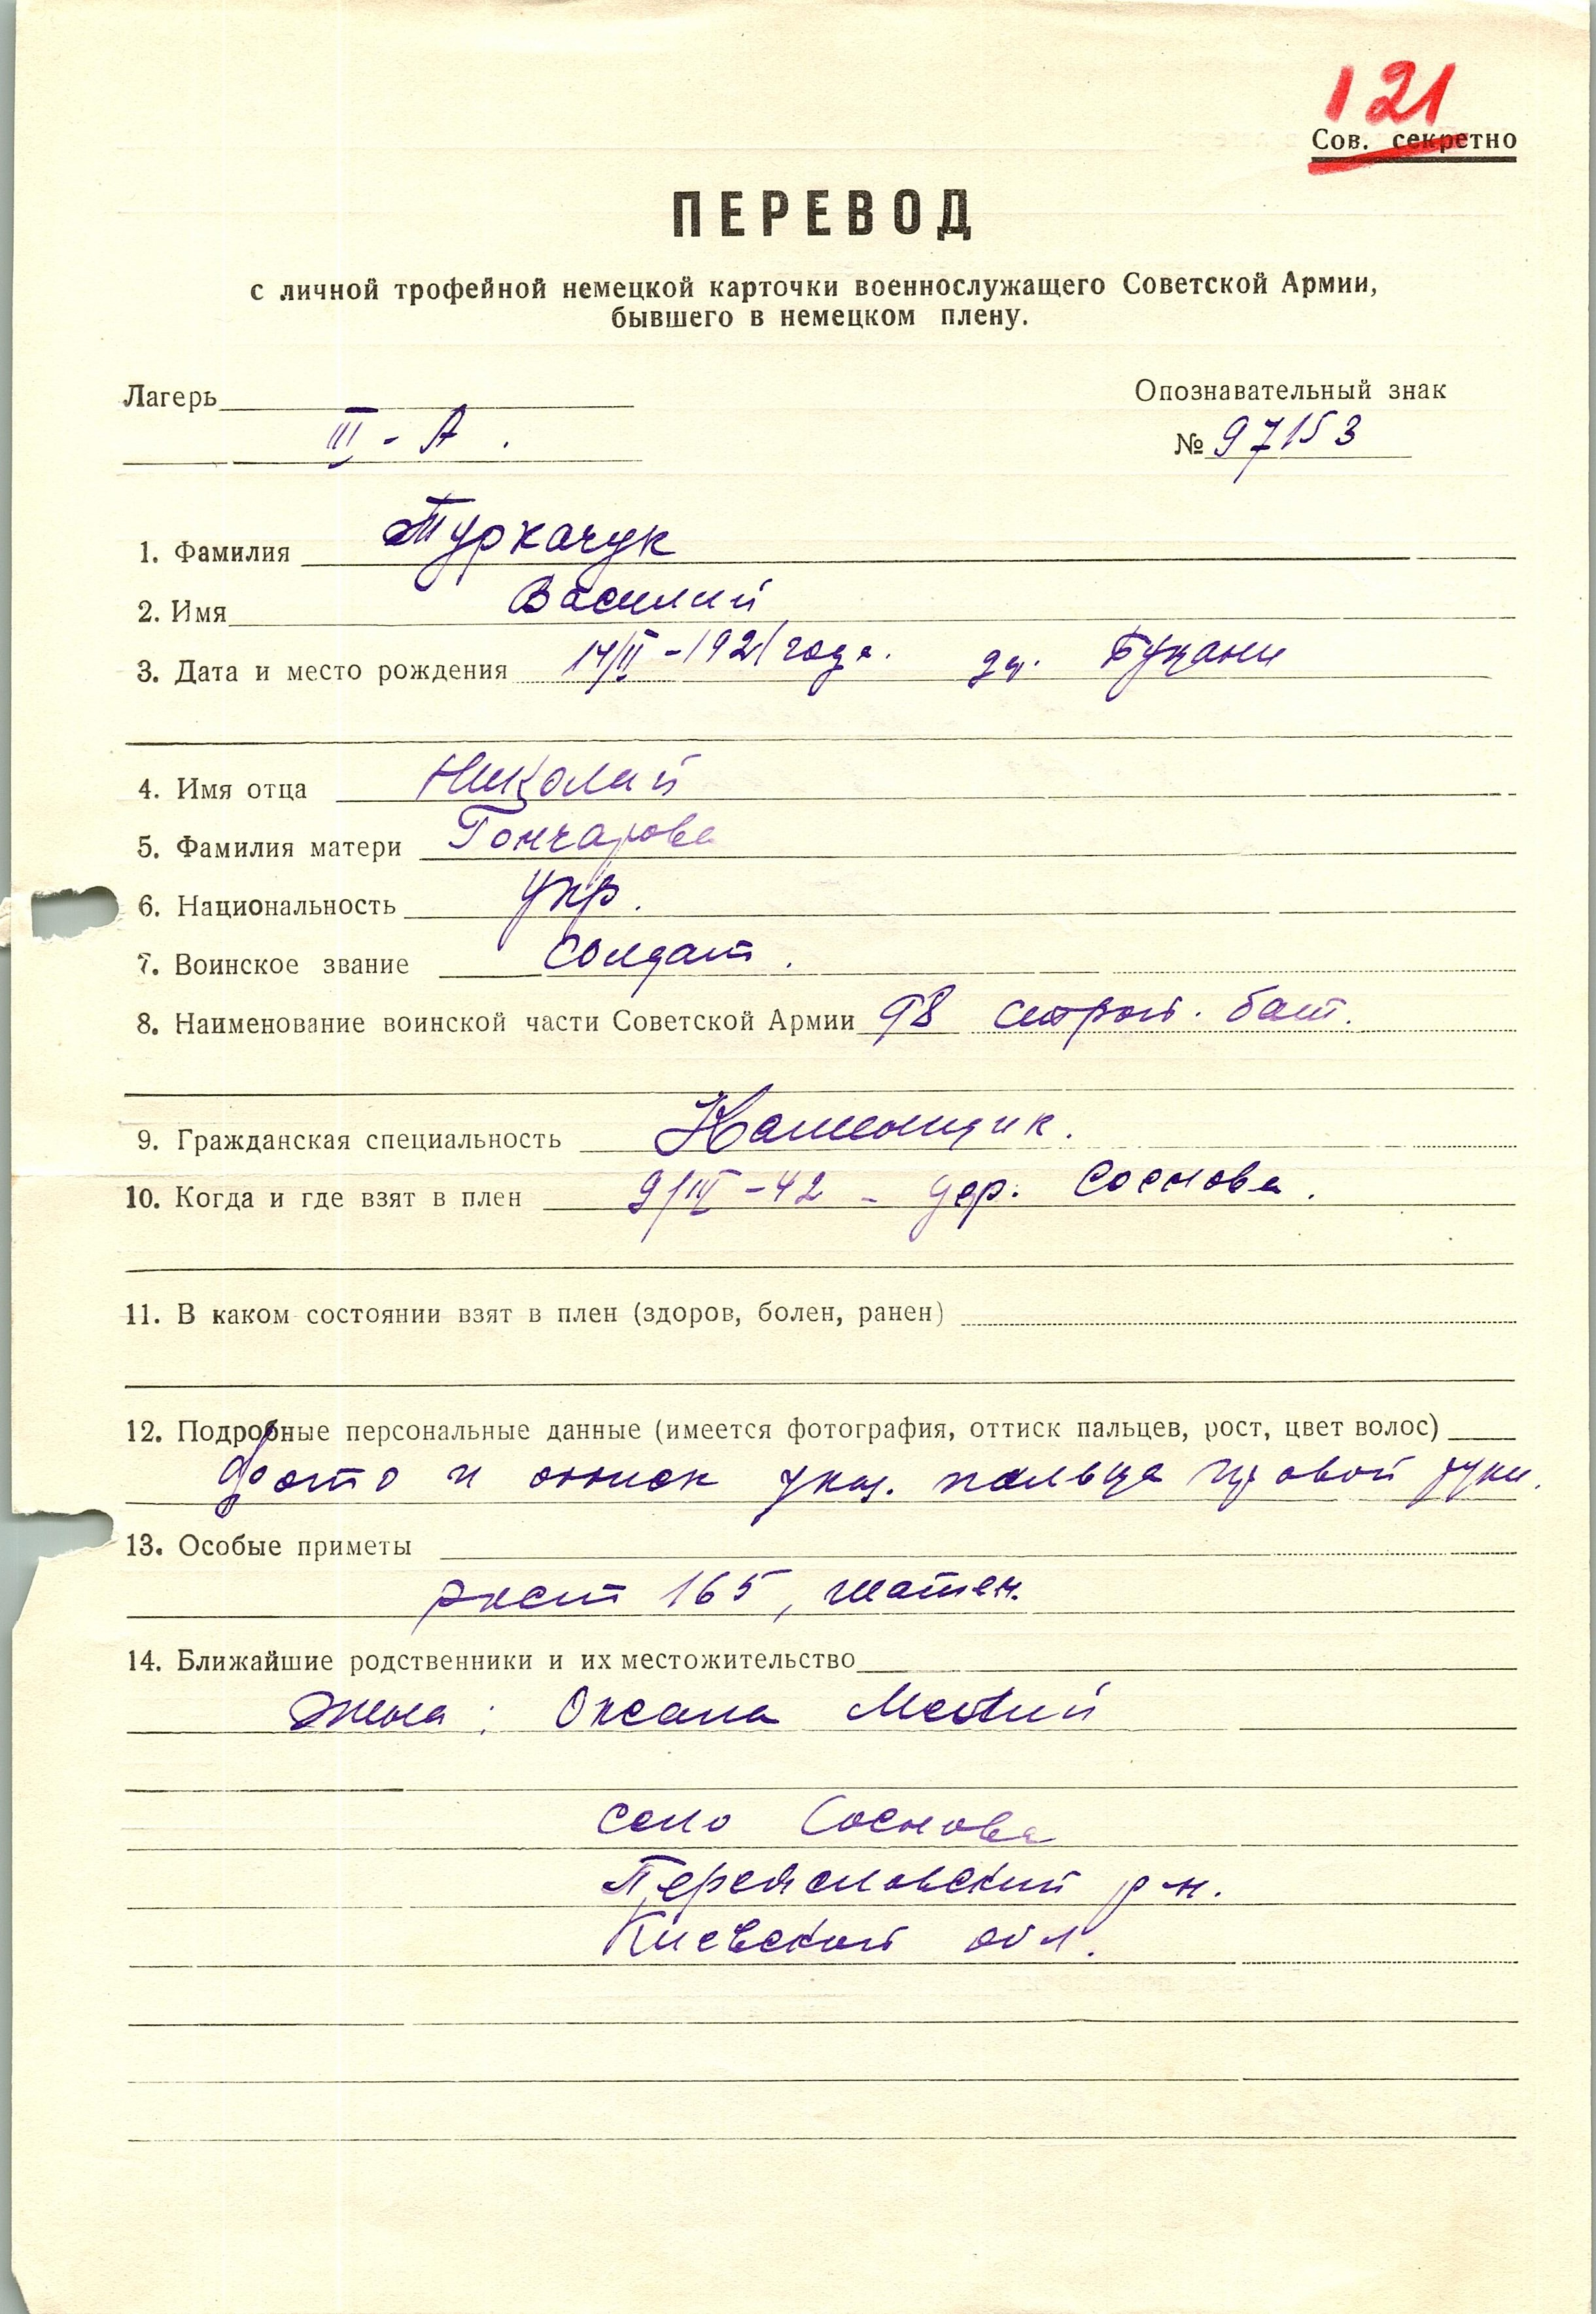 121
Сов. секретно
ПЕРЕВОД
с личной трофейной немецкой карточки военнослужащего Советской Армии,
бывшего в немецком плену.
Лагерь
Опознавательный знак
III - А .
№ 97153
1. Фамилия Туркачук
2. Имя Василий
3. Дата и место рождения 14/II - 1921 года. др.
4. Имя отца Николай
5. Фамилия матери Гончарова
6. Национальность укр.
7. Воинское звание солдат.
8. Наименование воинской части Советской Армии 98 строит. бат.
9. Гражданская специальность Каменщик.
10. Когда и где взят в плен - 42 - дер. Соснова.
11. В каком состоянии взят в плен (здоров, болен, ранен)
12. Подробные персональные данные (имеется фотография, оттиск пальцев, рост, цвет волос)
фото и оттиск указ. пальца правой руки.
13. Особые приметы
рост 165, шатен.
14. Ближайшие родственники и их местожительство
Жена: Оксана
село Соснова
Переяславский р-н.
Киевской обл.